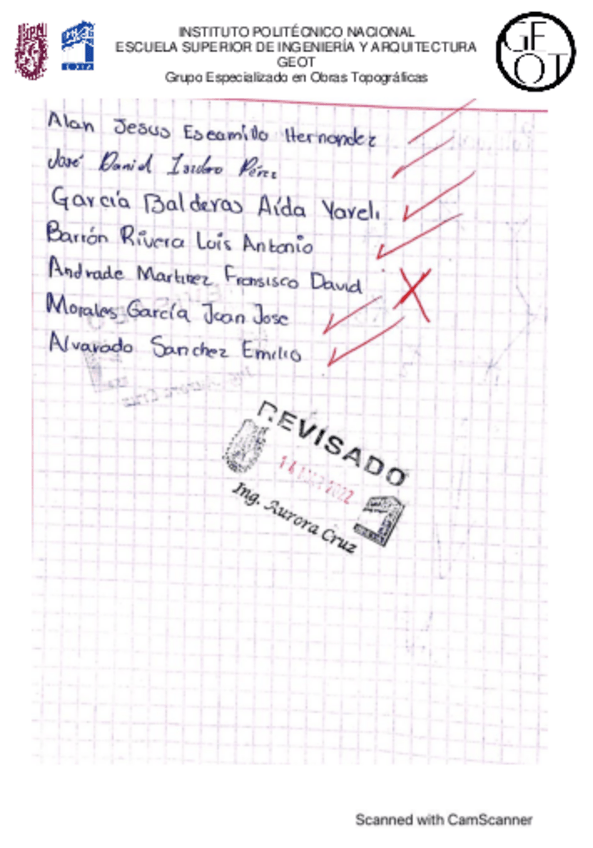 INSTITUTO POLITÉCNICO NACIONAL
ESCUELA SUPERIOR DE INGENIERÍA Y ARQUITECTURA
GEOT
Grupo Especializado en Obras Topográficas
GEOT
Alan Jesus Escamilla Hernandez
José Daniel Isidro Pérez
García Balderas Aída Yareli
Barrón Rivera Luis Antonio
Andrade Martinez Fransisco David
Morales García Juan Jose
Alvarado Sanchez Emilio
REVISADO
Ing. Aurora Cruz
Scanned with CamScanner